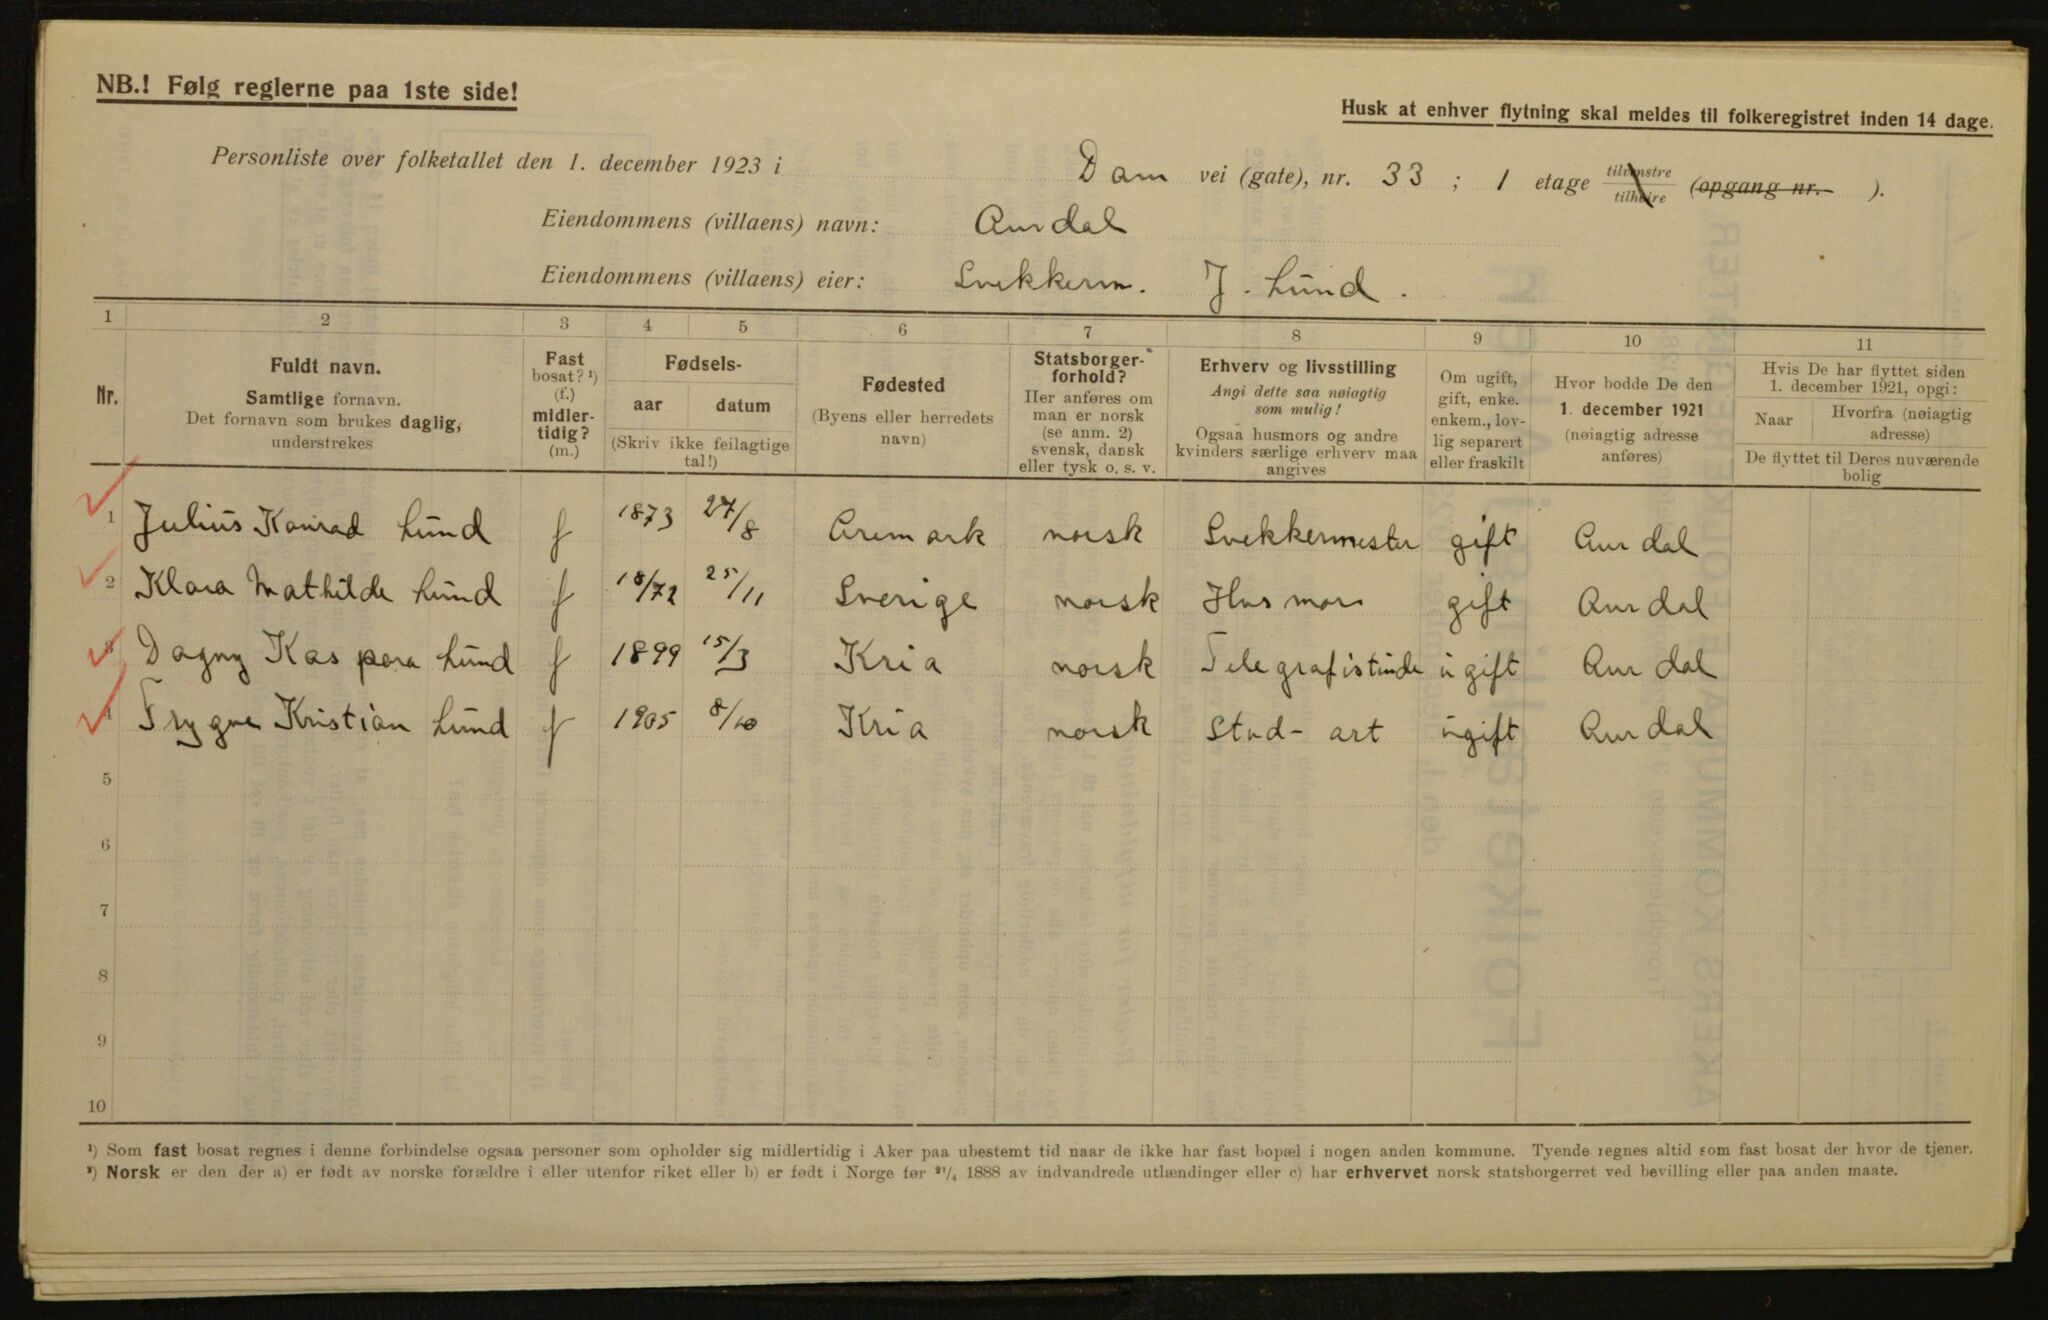 NB.! Følg reglerne paa 1ste side!
Husk at enhver flytning skal meldes til folkeregistret inden 14 dage.
Personliste over folketallet den 1. december 1923 i Dam vei (gate), nr. 33 ; 1 etage tilvenstre tilhøire (opgang nr. ).
Eiendommens (villaens) navn: Aurdal
Eiendommens (villaens) eier: Snekkerm. J. Lund.
1 2 3 4 5 6 7 8 9 10 11
Nr.
Fuldt navn.
Samtlige fornavn.
Det fornavn som brukes daglig,
understrekes
Fast
bosat? ¹)
(f.)
midler-
tidig?
(m.)
Fødsels-
aar datum
(Skriv ikke feilagtige
tal!)
Fødested
(Byens eller herredets
navn)
Statsborger-
forhold?
Her anføres om
man er norsk
(se anm. 2)
svensk, dansk
eller tysk o. s. v.
Erhverv og livsstilling
Angi dette saa nøiagtig
som mulig!
Ogsaa husmors og andre
kvinders særlige erhverv maa
angives
Om ugift,
gift, enke.
enkem., lov-
lig separert
eller fraskilt
Hvor bodde De den
1. december 1921
(nøiagtig adresse
anføres)
Hvis De har flyttet siden
1. december 1921, opgi:
Naar Hvorfra (nøiagtig
adresse)
De flyttet til Deres nuværende
bolig
1 Julius Konrad Lund f 1873 27/8 Aremark norsk Snekkermester gift Aurdal
2 Klara Mathilde Lund f 18/72 25/11 Sverige norsk Husmor gift Aurdal
3 Dagny Kaspara Lund f 1899 15/3 Kria norsk Telegrafistinde ugift Aurdal
4 Trygve Kristian Lund f 1905 8/10 Kria norsk Stud-art ugift Aurdal
5
6
7
8
9
10
¹) Som fast bosat regnes i denne forbindelse ogsaa personer som opholder sig midlertidig i Aker paa ubestemt tid naar de ikke har fast bopæl i nogen anden kommune. Tyende regnes altid som fast bosat der hvor de tjener.
²) Norsk er den der a) er født av norske forældre i eller utenfor riket eller b) er født i Norge før ²¹/₄ 1888 av indvandrede utlændinger eller c) har erhvervet norsk statsborgerret ved bevilling eller paa anden maate.